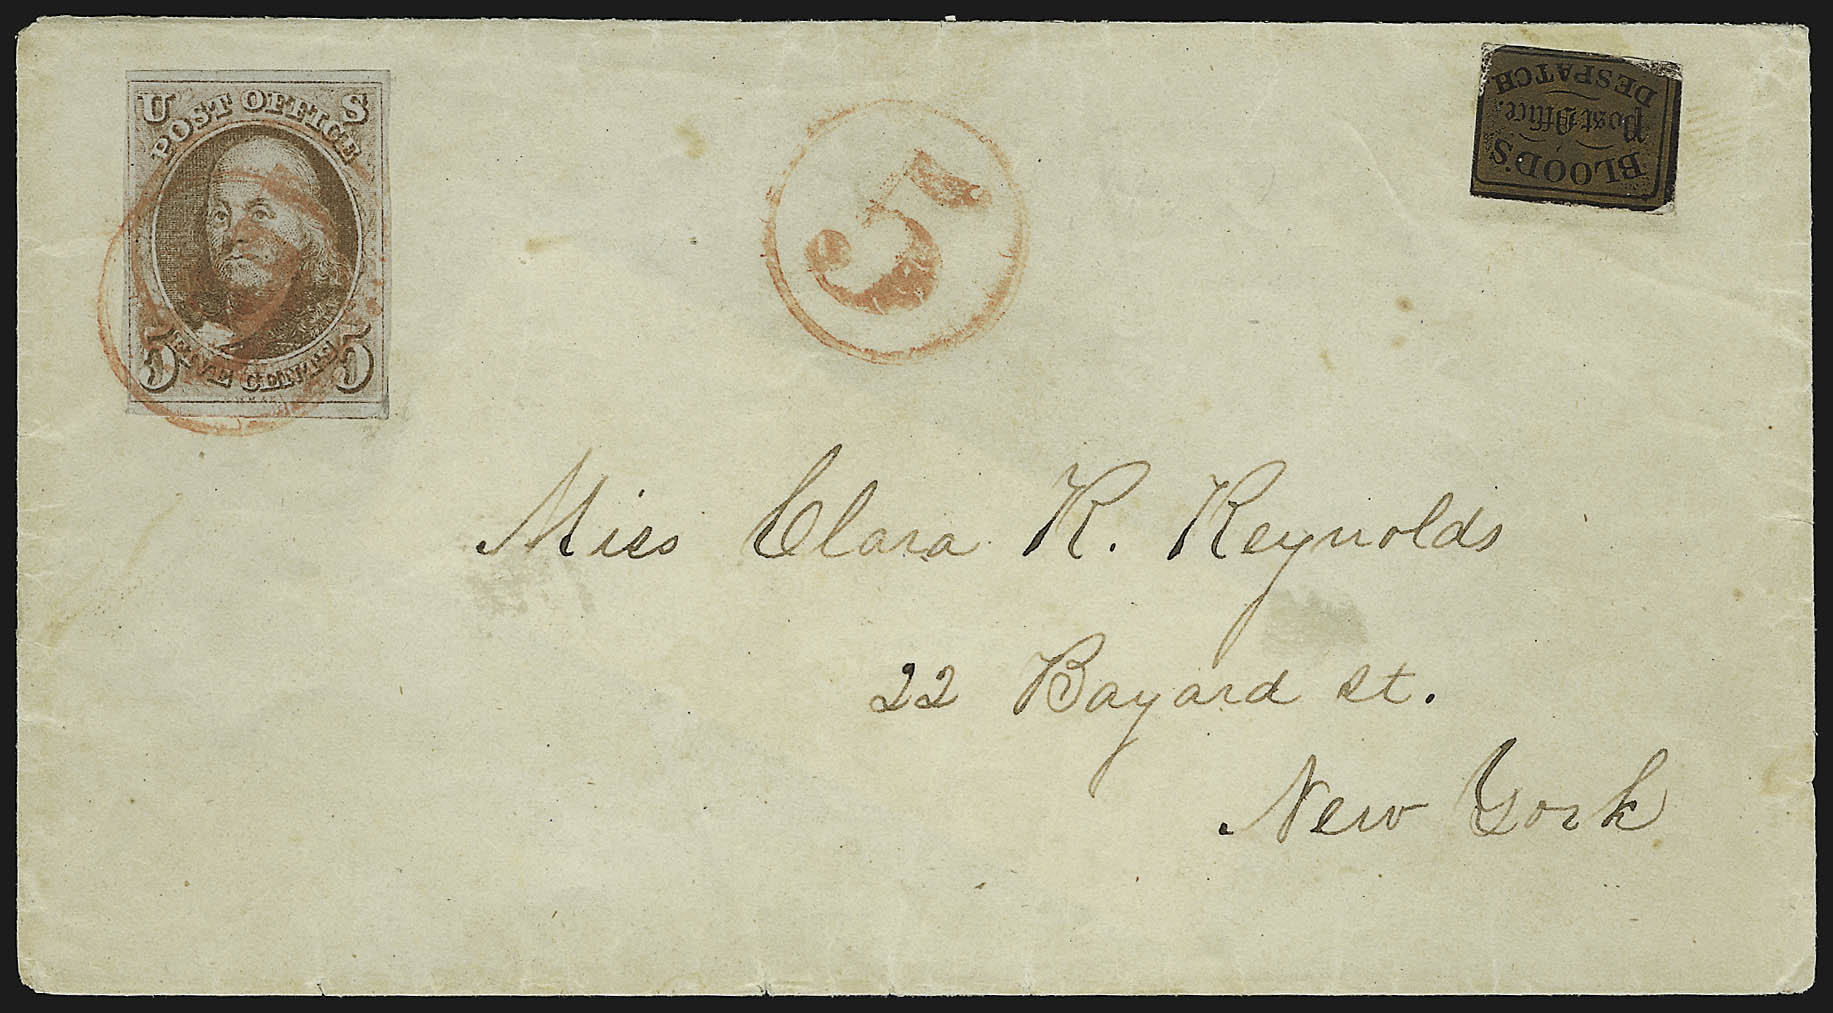 U S
POST OFFICE
5 FIVE CENTS 5
5
BLOOD'S
Post Office.
DESPATCH
Miss Clara K. Reynolds
22 Bayard st.
New York